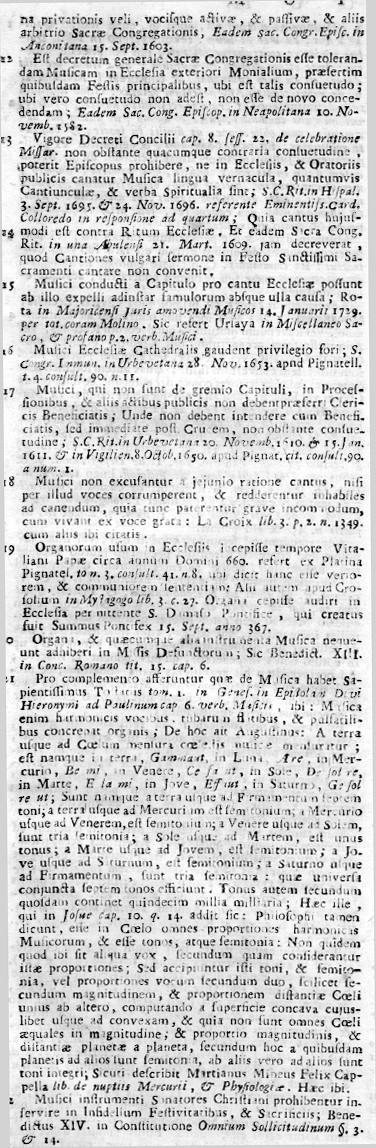 na privationis veli, vocisque activæ, & passivæ, & aliis
arbitrio Sacræ Congregationis, Eadem Sac. Congr. Episc. in
Anconitana 15. Sept. 1603.
22 Est decretum generale Sacræ Congregationis esse toleran-
dam Musicam in Ecclesia exteriori Monialium, præsertim
quibusdam Festis principalibus, ubi est talis consuetudo;
ubi vero consuetudo non adest, non esse de novo conce-
dendam; Eadem Sac. Cong. Episcop. in Neapolitana 10. No-
vemb. 1582.
23 Vigore Decreti Concilii cap. 8. sess. 22. de celebratione
Missar. non obstante quacumque contraria consuetudine,
poterit Episcopus prohibere, ne in Ecclesiis, & Oratoriis
publicis canatur Musica lingua vernacula, quantumvis
Cantiunculæ, & verba Spiritualia sint; S.C. Rit. in Hispal.
3. Sept. 1695. & 24. Nov. 1696. referente Eminentiss. Card.
Colloredo in responsione ad quartum; Quia cantus hujus-
24 modi est contra Ritum Ecclesiæ, Et eadem Sacra Cong.
Rit. in una Apulensi 21. Mart. 1609. jam decreverat,
quod Cantiones vulgari sermone in Festo Sanctissimi Sa-
cramenti cantare non convenit.
15 Musici conducti a Capitulo pro cantu Ecclesiæ possunt
ab illo expelli adinstar famulorum absque ulla causa; Ro-
ta in Majoricensi Juris amovendi Musicos 14. Januarii 1729.
per tot. coram Molino. Sic refert Ursaya in Miscellaneo Sa-
cro, & profano p.2. verb. Musici.
16 Musici Ecclesiæ Cathedralis gaudent privilegio fori; S.
Congr. Immun. in Urbevetana 28. Nov. 1653. apud Pignatell.
t. 4. consult. 90. n. 11.
17 Musici, qui non sunt de gremio Capituli, in Proces-
sionibus, & aliis actibus publicis non debent præferri Cleri-
cis Beneficiatis; Unde non debent incedere cum Benefi-
ciatis, sed immediate post Crucem, non obstante consue-
tudine; S.C. Rit. in Urbevetana 20. Novemb. 1610. & 15. Jan.
1611. & in Vigilien. 8. Octob. 1650. apud Pignat. cit. consult. 90.
a num. 1.
18 Musici non excusantur a jejunio ratione cantus, nisi
per illud voces corrumperent, & redderentur inhabiles
ad canendum, quia tunc paterentur grave incommodum,
cum vivant ex voce grata: La Croix lib. 3. p. 2. n. 1349.
cum aliis ibi citatis.
19 Organorum usum in Ecclesiis incepisse tempore Vita-
liani Papæ circa annum Domini 660. refert ex Platina
Pignatel. tom. 3. consult. 41. n. 8. ubi dicit hanc esse verio-
rem, & communiorem sententiam; Alii autem apud Gros-
solium in Mystagogo lib. 3. c. 27. Organa cepisse audiri in
Ecclesia permittente S. Damaso Pontifice, qui creatus
fuit Summus Pontifex 15. Sept. anno 367.
0 Organa, & quæcumque alia instrumenta Musica neque-
unt adhiberi in Missis Defunctorum; Sic Benedict. XIII.
in Conc. Romano tit. 15. cap. 6.
21 Pro complemento afferuntur quæ de Musica habet Sa-
pientissimus Tostatus tom. 1. in Genes. in Epistolam Divi
Hieronymi ad Paulinum cap. 6. verb. Musici, ibi: Musica
enim harmonicis vocibus, tubarum flatibus, & pulsatili-
bus concrepat organis; De hoc ait Augustinus: A terra
usque ad Cœlum mensura cœlestis musicæ mensuratur;
est namque in terra, Gammaut, in Luna, Are, in Mer-
curio, Be mi, in Venere, Ce fa ut, in Sole, De sol re,
in Marte, E la mi, in Jove, Effaut, in Saturno, Ge sol
re ut; Sunt namque a terra usque ad Firmamentum septem
toni; a terra usque ad Mercurium est semitonium; a Mercurio
usque ad Venerem, est semitonium; a Venere usque ad Solem,
sunt tria semitonia; a Sole usque ad Martem, est unus
tonus; a Marte usque ad Jovem, est semitonium; a Jo-
ve usque ad Saturnum, est semitonium; a Saturno usque
ad Firmamentum, sunt tria semitonia: quæ universa
conjuncta septem tonos efficiunt. Tonus autem secundum
quosdam continet quindecim millia milliaria; Hæc ille,
qui in Josue cap. 10. q. 14. addit sic: Philosophi tamen
dicunt, esse in Cœlo omnes proportiones harmonicas
Musicorum, & esse tonos, atque semitonia: Non quidem
quod ibi sit aliqua vox, secundum quam considerantur
istæ proportiones; Sed accipiuntur isti toni, & semito-
nia, vel proportiones vocum secundum duo, scilicet se-
cundum magnitudinem, & proportionem distantiæ Cœli
unius ab altero, computando a superficie concava cujus-
libet usque ad convexam, & quia non sunt omnes Cœli
æquales in magnitudine; & proportio magnitudinis, &
distantiæ planetæ a planeta, secundum hoc a quibusdam
planetis ad alios sunt semitonia, ab aliis vero ad alios sunt
toni integri; Sicuti describit Martianus Mineus Felix Ca-
pella lib. de nuptiis Mercurii, & Physiologiæ. Hæc ibi.
2 Musici instrumenti Sonatores Christiani prohibentur in-
servire in Infidelium Festivitatibus, & Sacrificiis; Bene-
dictus XIV. in Constitutione Omnium Sollicitudinum §. 3.
& 14.